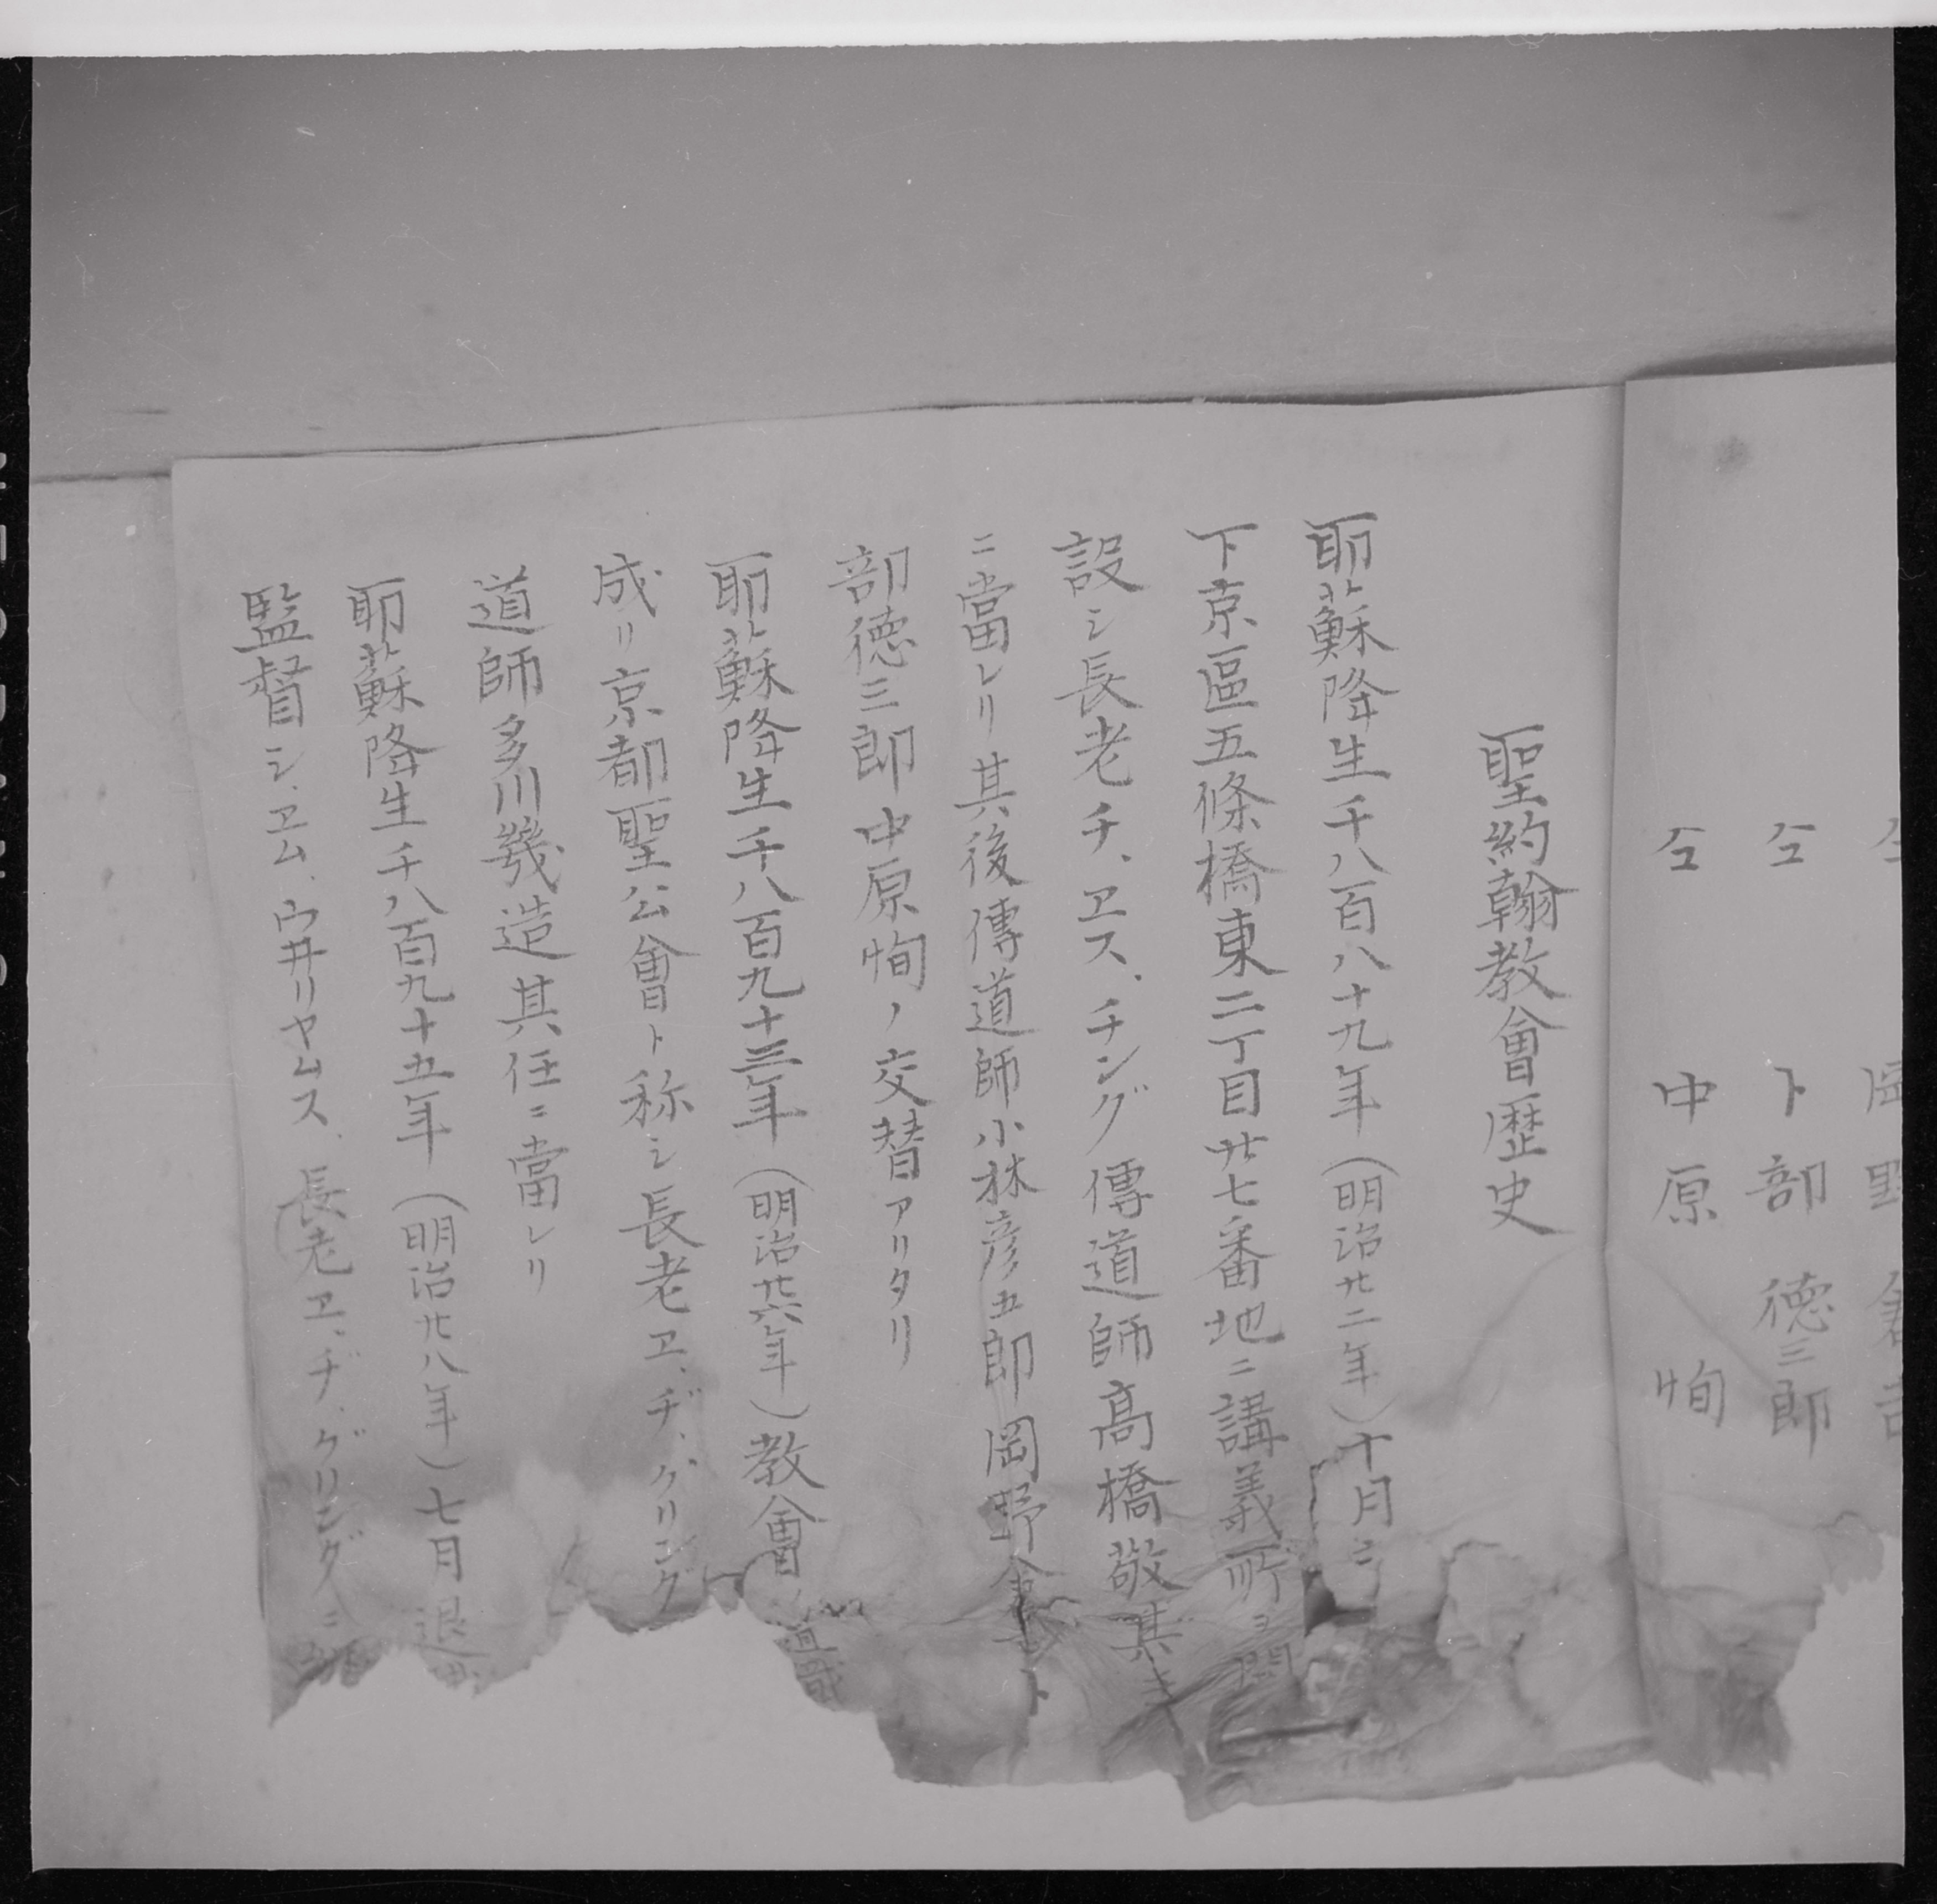 岡野
仝 卜部徳三郎
仝 中原恂
聖約翰教會歴史
耶蘇降生千八百八十九年（明治廿二年）十月ニ
下京區五條橋東二丁目廿七番地ニ講義所ヲ開
設シ長老チ、ヱス、チング傳道師髙橋敬其
ニ當レリ其後傳道師小林彦五郎岡野
部徳三郎中原恂ノ交替アリタリ
耶蘇降生千八百九十三年（明治廿六年）教會
成リ京都聖公會ト称シ長老ヱ、ヂ、グリング
道師多川幾造其任ニ當レリ
耶蘇降生千八百九十五年（明治廿八年）七月退
監督シ、ヱム、ウ井リヤムス、長老ヱ、ヂ、グリング